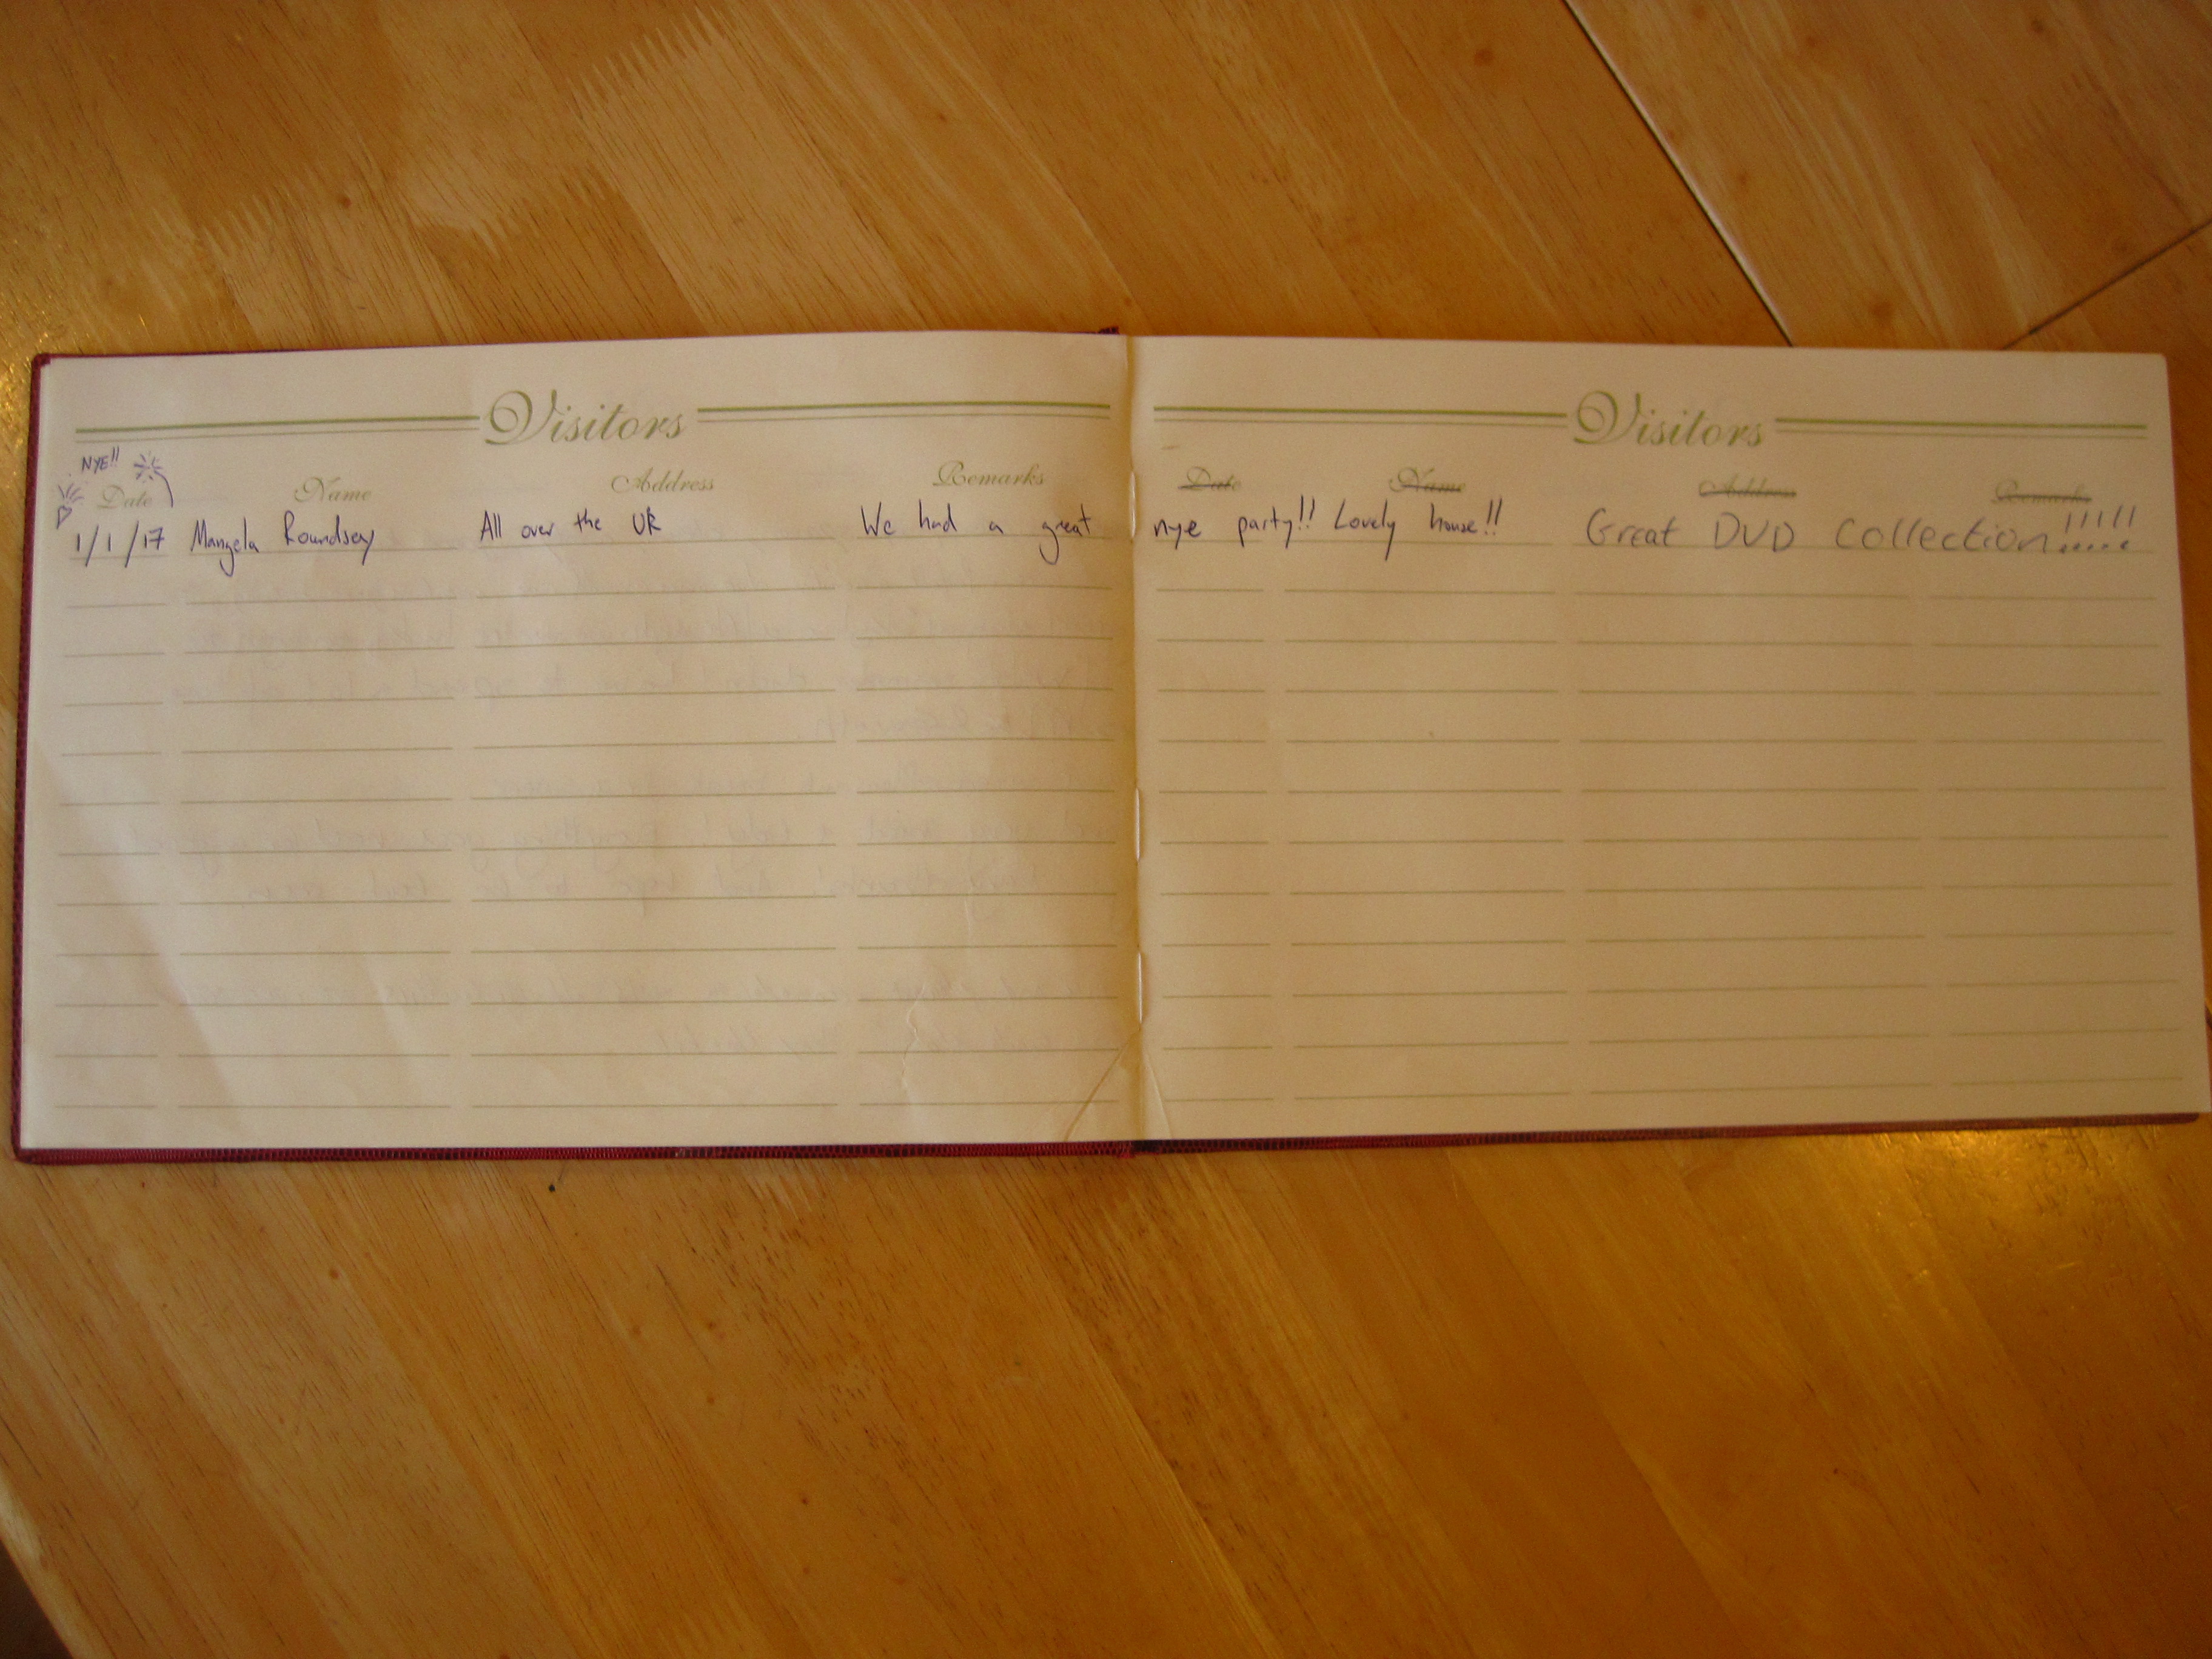 Visitors
NYE!!
Date Name Address Remarks
1/1/17 Mangela Roundsay All over the UK We had a great
Visitors
Date Name Address Remarks
nye party!! Lovely house!! Great DVD Collection!!!!!